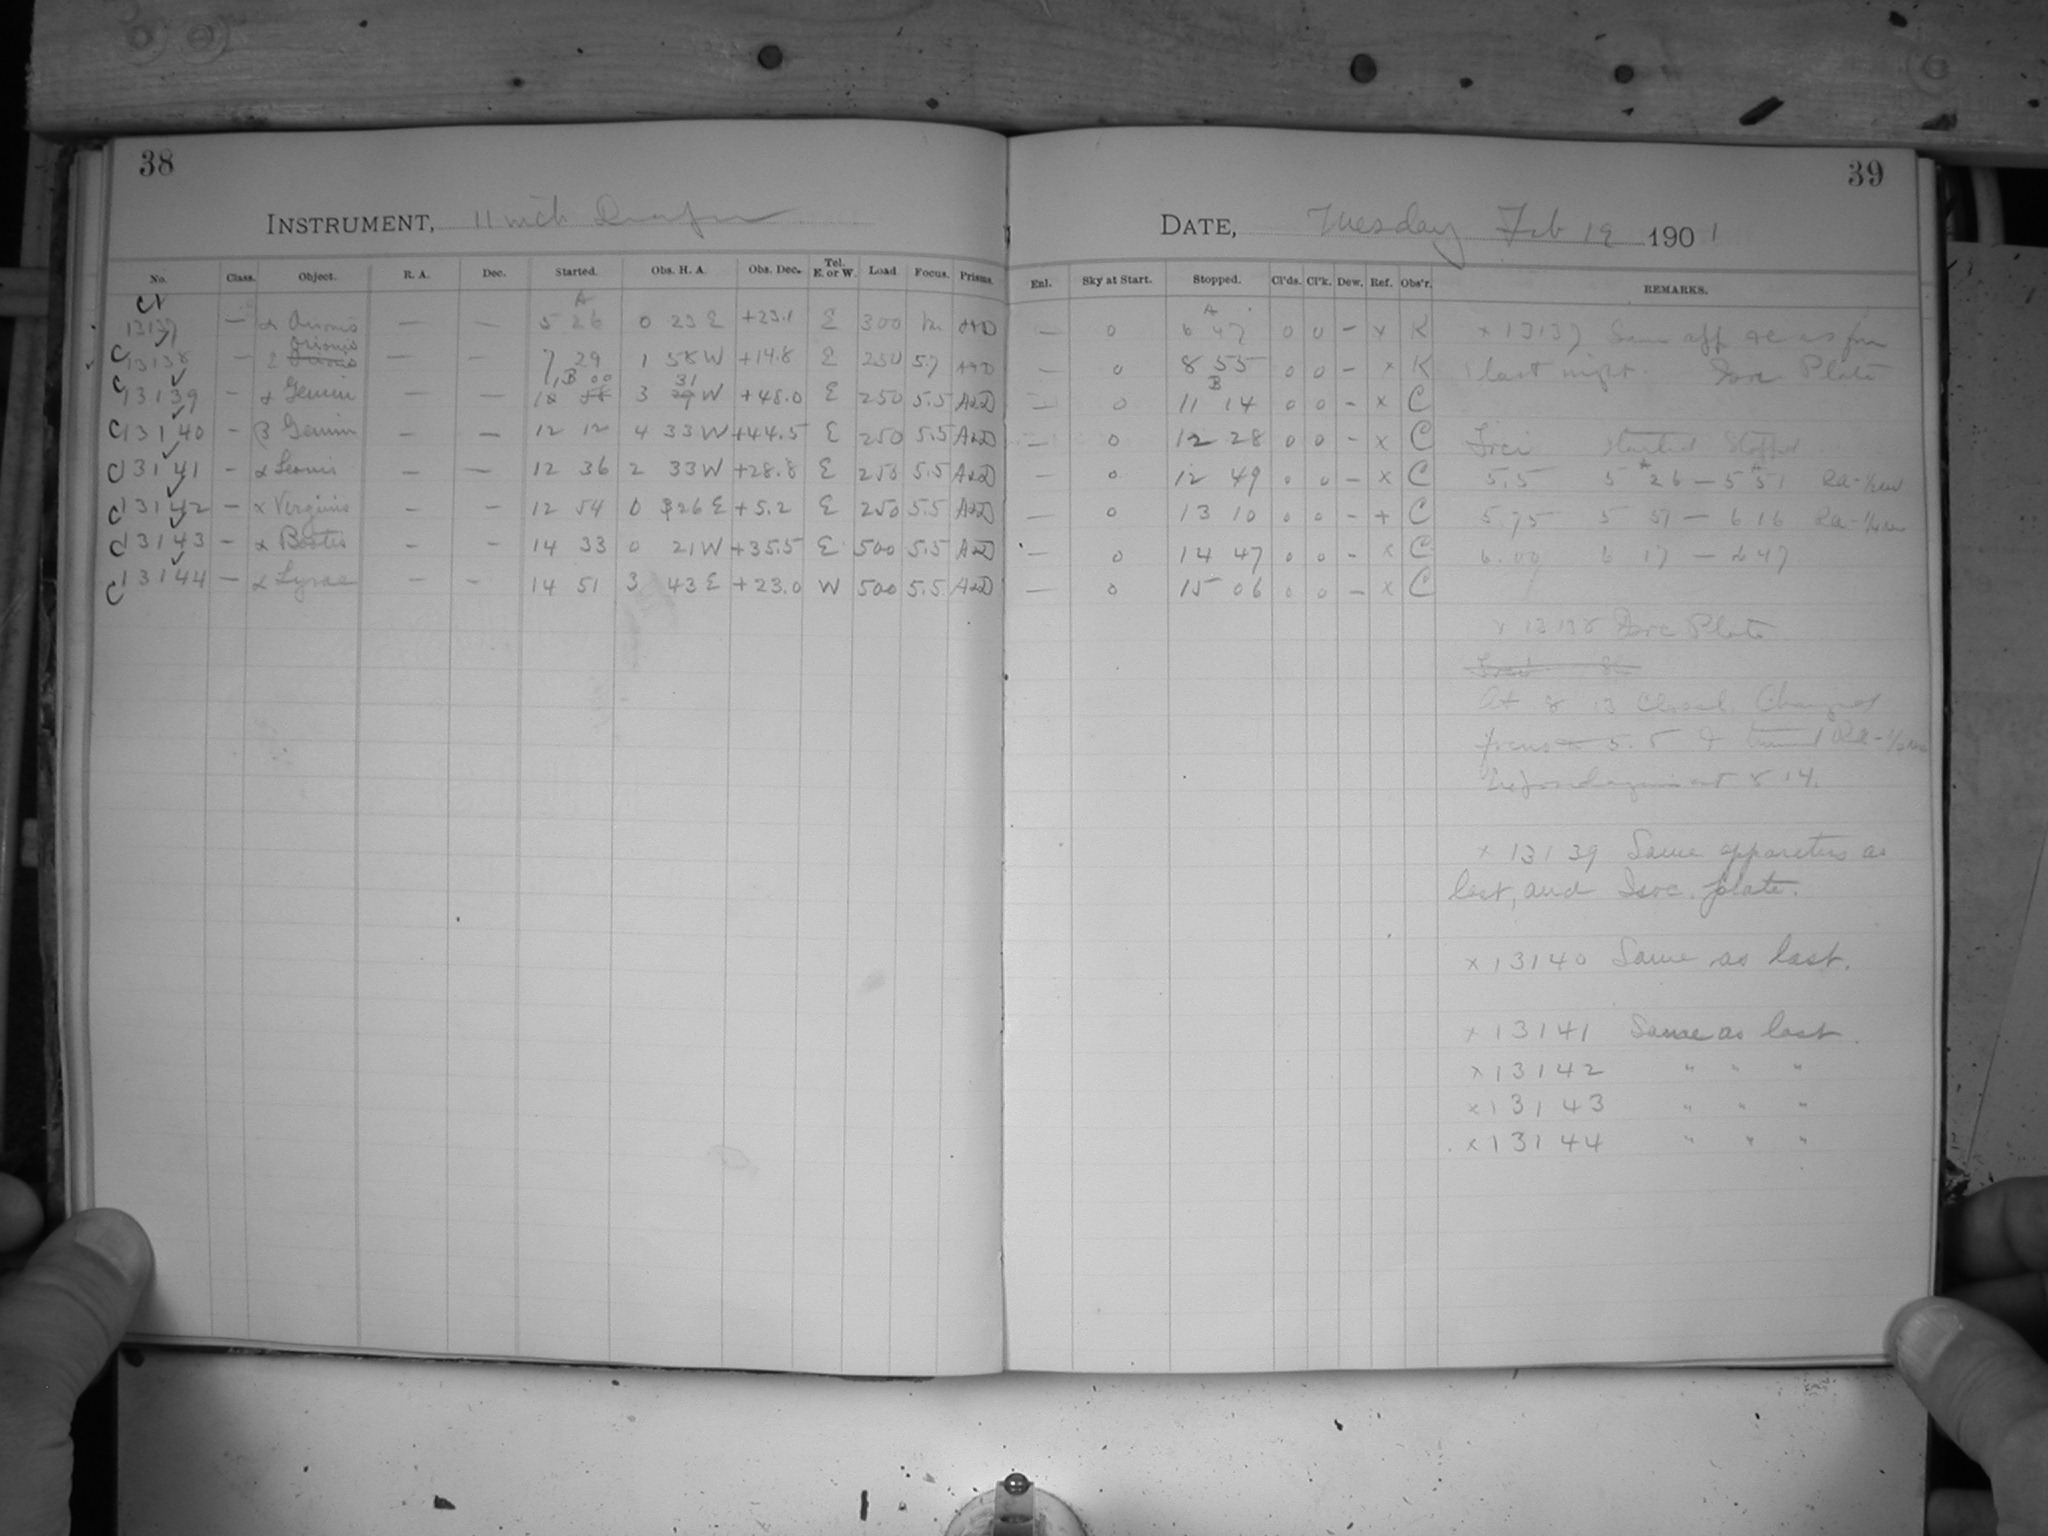 38
INSTRUMENT, 11 inch Draper
No. Class. Object. R. A. Dec. Started. Obs. H. A. Obs. Dec. Tel. E. or W. Load Focus. Prisms.
C 13137 — α Orionis — — A 5 26 0 23 E +23.1 E 300 A+D
Orionis
C 13138 — — — 7 29 1 58 W +14.8 E 250 5.7 A+D
B 00 31
C 13139 — α Gemin 3 W +48.0 E 250 5.5 A&D
C 13140 — β Gemin — — 12 12 4 33 W +44.5 E 250 5.5 A&D
C 13141 — α Leonis — — 12 36 2 33 W +28.8 E 250 5.5 A&D
C 13142 — α Virginis — — 12 54 0 26 E +5.2 E 250 5.5 A&D
C 13143 — α Bootis - - 14 33 0 21 W +35.5 E 500 5.5 A&D
C 13144 — α Lyrae — — 14 51 3 43 E +23.0 W 500 5.5 A&D
39
DATE, Tuesday Feb 19 1901
Enl. Sky at Start. Stopped. Cl'ds. Cl'k. Dew. Ref. Obs'r. REMARKS.
— 0 A 6 47 0 0 – x K x 13137 Same app &c as for
— 0 8 55 0 0 – x K last night Isoc Plate
— 0 B 11 14 0 0 – x C
— 0 12 28 0 0 – x C Foci Started Stopped
— 0 12 49 0 0 – x C 5.5 5 26 — 5 51 RA-
— 0 13 10 0 0 – + C 5.75 5 51 — 6 16 RA-
— 0 14 47 0 0 – x C 6.00 6 17 — 6 47
— 0 15 06 0 0 – x C
x 13138 Isoc Plate
At 8 13 Closed. Changed
focus 5.5 & turned RA-
at 8 14.
x 13139 Same apparatus as
last, and Isoc. plate.
x 13140 Same as last.
x 13141 Same as last.
x 13142 " " "
x 13143 " " "
x 13144 " " "